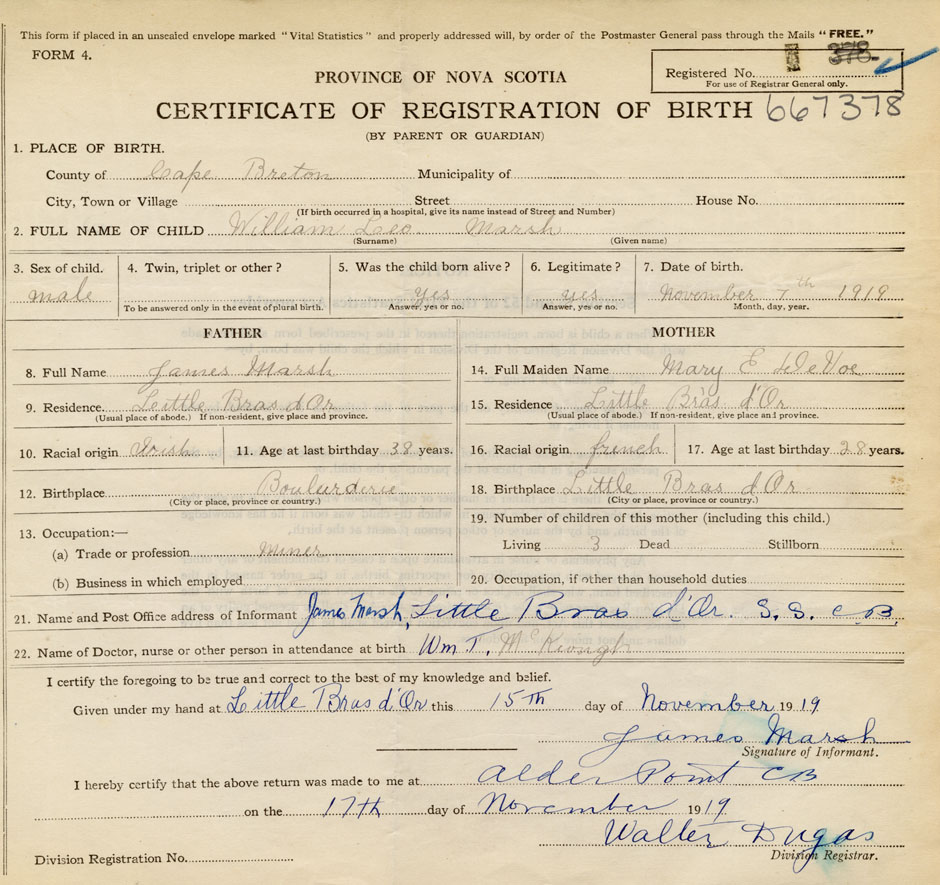 This form if placed in an unsealed envelope marked "Vital Statistics" and properly addressed will, by order of the Postmaster General pass through the Mails "FREE."
FORM 4.
378
Registered No.
For use of Registrar General only.
PROVINCE OF NOVA SCOTIA
CERTIFICATE OF REGISTRATION OF BIRTH 667378
(BY PARENT OR GUARDIAN)
1. PLACE OF BIRTH.
County of Cape Breton Municipality of
City, Town or Village Street House No.
(If birth occurred in a hospital, give its name instead of Street and Number)
2. FULL NAME OF CHILD William Leo Marsh
(Surname) (Given name)
3. Sex of child. 4. Twin, triplet or other? 5. Was the child born alive? 6. Legitimate? 7. Date of birth.
male yes yes November 7th 1919
To be answered only in the event of plural birth. Answer, yes or no. Answer, yes or no. Month, day, year.
FATHER MOTHER
8. Full Name James Marsh 14. Full Maiden Name Mary E DeVoe
9. Residence. Little Bras d'Or 15. Residence Little Bras d'Or
(Usual place of abode.) If non-resident, give place and province. (Usual place of abode.) If non-resident, give place and province.
10. Racial origin Irish 11. Age at last birthday 38 years. 16. Racial origin french 17. Age at last birthday 28 years.
12. Birthplace Boulardrie 18. Birthplace Little Bras d'Or
(City or place, province or country.) (City or place, province or country.)
13. Occupation:— 19. Number of children of this mother (including this child.)
(a) Trade or profession Miner Living 3 Dead Stillborn
(b) Business in which employed 20. Occupation, if other than household duties
21. Name and Post Office address of Informant James Marsh, Little Bras d'Or. S. S. CB,
22. Name of Doctor, nurse or other person in attendance at birth Wm T. McKeough
I certify the foregoing to be true and correct to the best of my knowledge and belief.
Given under my hand at Little Bras d'Or this 15th day of November 1919
James Marsh
Signature of Informant.
I hereby certify that the above return was made to me at Alder Point CB
on the 17th day of November 1919
Walter Dugas
Division Registrar.
Division Registration No.